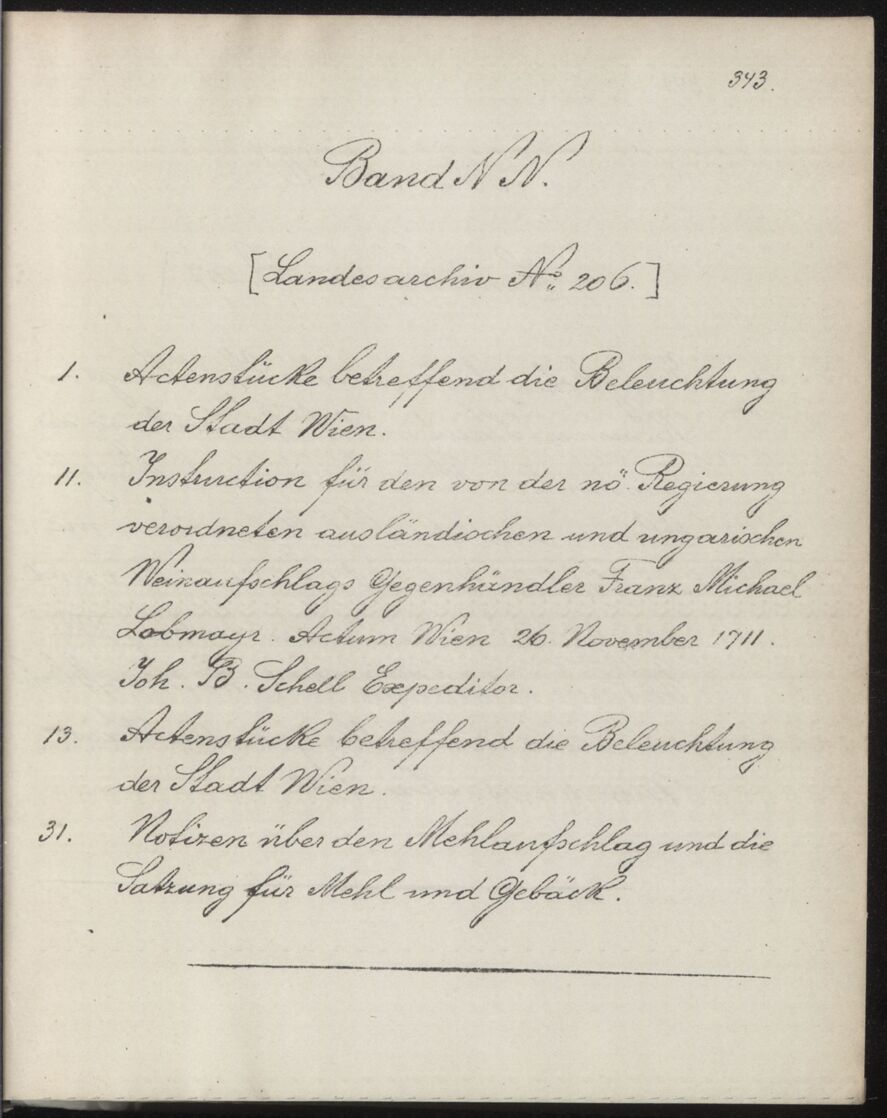 343.
Band N N.
[Landesarchiv No. 206.]
1. Actenstücke betreffend die Beleuchtung
der Stadt Wien.
11. Instruction für den von der nö. Regierung
verordneten ausländischen und ungarischen
Weinaufschlags Gegenhändler Franz Michael
Lobmayr. Actum Wien 26. November 1711.
Joh. B. Schell Expeditor.
13. Actenstücke betreffend die Beleuchtung
der Stadt Wien.
31. Notizen über den Mehlaufschlag und die
Satzung für Mehl und Gebäck.